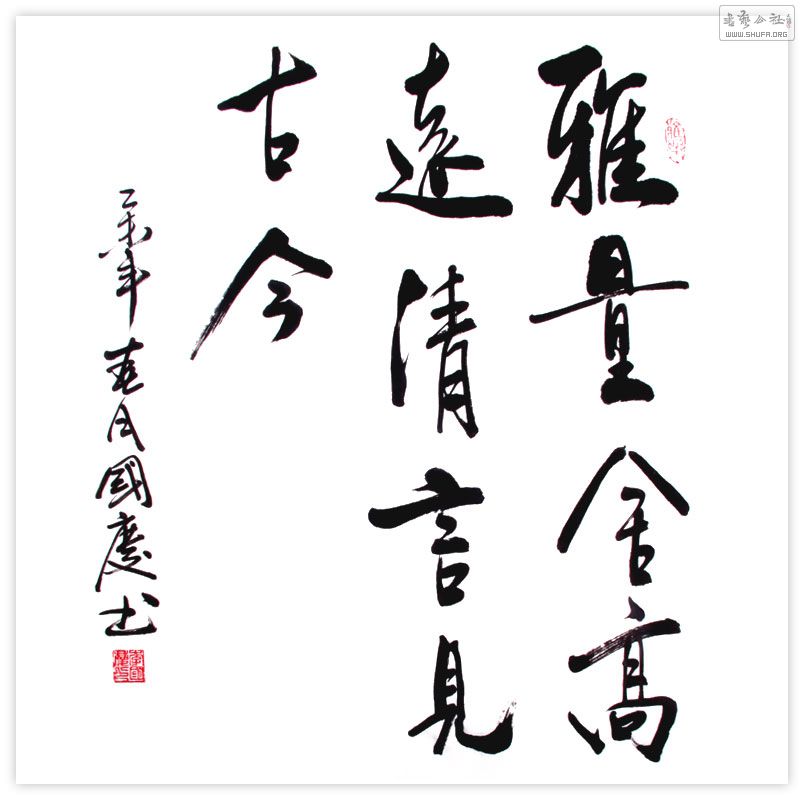 書藝公社
WWW.SHUFA.ORG
雅量舍高
遠清言見
古今
年春月國慶书